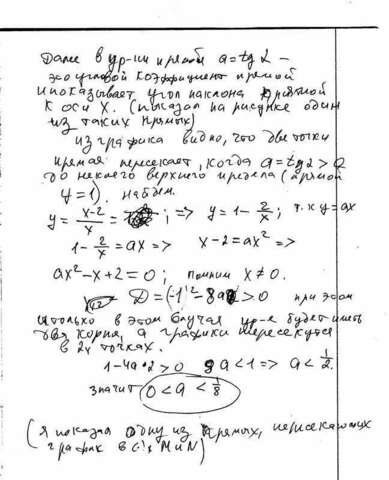 Далее в ур-нии прямой a=tg α -
это угловой коэффициент прямой
и показывает угол наклона прямой
к оси X. (показал на рисунке один
из таких прямых)
из графика видно, что две точки
прямая пересекает, когда a=tg α > 0
до некоего верхнего предела (прямой
y=1). Найдём.
y = x-2/x = ; => y = 1 - 2/x ; т.к y=ax
1 - 2/x = ax => x-2 = ax² =>
ax² - x + 2 = 0 ; помним x ≠ 0.
D = (-1)² - 8a > 0 при этом
и только в этом случае ур-е будет иметь
два корня, а графики пересекутся
в 2х точках.
1-4a·2 > 0 8a < 1 => a < 1/2.
значит 0 < a < 1/8
(я показал одну из прямых, пересекающих
график в M и N)